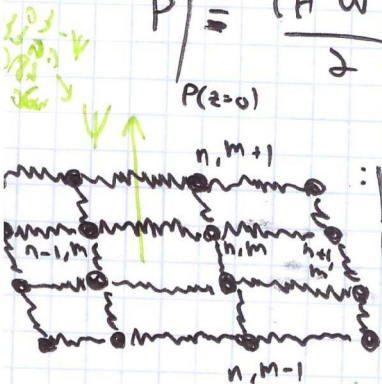 P| = (A ω
2
P(z=0)
ψ
ψ
n, m+1
n-1, m n, m n+1, m
n, m-1